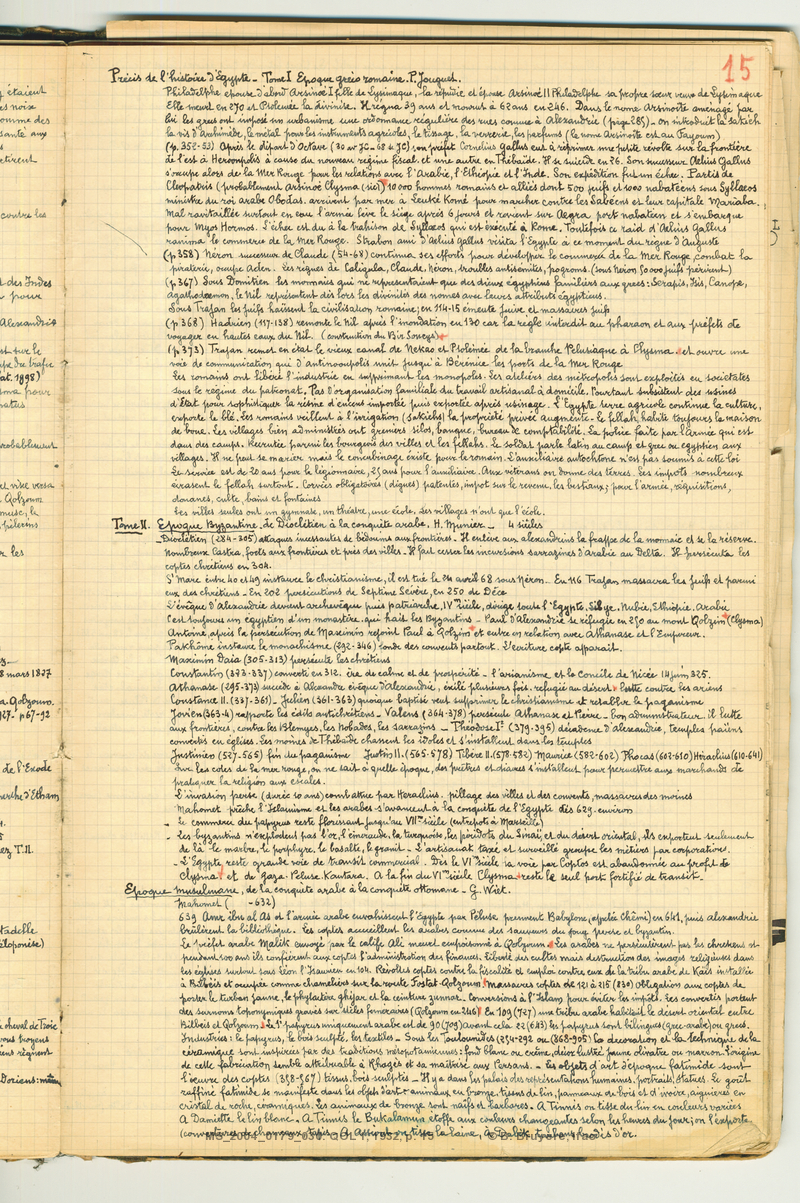 15
Précis de l'histoire d'Egypte - Tome I Epoque gréco romaine. P. Jouguet.
Philadelphe épouse d'abord Arsinoé I fille de Lysimaque, la répudie et épouse Arsinoé II Philadelphe sa propre sœur veuve de Lysimaque
Elle meurt en 270 et Ptolémée la divinise. Il régna 39 ans et mourut à 62 ans en 246. Dans le nome Arsinoïte aménagé par
lui les grecs ont imposé un urbanisme une ordonnance régulière des rues comme à Alexandrie (page 285) - on introduit la sakieh
la vis d'Archimède, le métal pour les instruments agricoles, le tissage, la verrerie, les parfums (le nome Arsinoïte est au Fayoum)
(p. 352-53) Après le départ d'Octave (30 av JC - 68 de JC) son préfet Cornelius Gallus eut à réprimer une petite révolte sur la frontière
de l'est à Heroonpolis à cause du nouveau régime fiscal et une autre en Thébaïde. Il se suicide en 26. Son successeur Aelius Gallus
s'occupe alors de la Mer Rouge pour les relations avec l'Arabie, l'Ethiopie et l'Inde. Son expédition fut un échec. Partis de
Cleopatris (probablement Arsinoé Clysma (sic)) 10000 hommes romains et alliés dont 500 juifs et 1000 nabatéens sous Syllaeos
ministre du roi arabe Obodas. arrivent par mer à Leuké Komé pour marcher contre les Sabéens et leur capitale Mariaba.
Mal ravitaillée surtout en eau l'armée lève le siège après 6 jours et revient sur Aegra port nabatéen et s'embarque
pour Myos Hormos. L'échec est dû à la trahison de Syllaeos qui est exécuté à Rome. Toutefois ce raid d'Aelius Gallus
ranima le commerce de la Mer Rouge. Strabon ami d'Aelius Gallus visita l'Egypte à ce moment du règne d'Auguste
(p. 358) Néron successeur de Claude (54-68) continua ses efforts pour développer le commerce de la Mer Rouge, combat la
piraterie, occupe Aden. Les règnes de Caligula, Claude, Néron, troubles antisémites, pogroms. (sous Néron 50000 juifs périrent)
(p. 367) Sous Domitien les monnaies qui ne représentaient que des dieux égyptiens familiers aux grecs: Serapis, Isis, Canope,
agathodaemon, le Nil représentent dès lors les divinités des nomes avec leurs attributs égyptiens.
Sous Trajan les juifs haïssent la civilisation romaine; en 114-15 émeute juive et massacres juifs
(p 368) Hadrien (117-138) remonte le Nil après l'inondation en 130 car la règle interdit au pharaon et aux préfets de
voyager en hautes eaux du Nil. (construction du Bir Soueys)
(p. 373) Trajan remet en état le vieux canal de Nekao et Ptolémée de la branche Pelusiaque à Clysma. et ouvre une
voie de communication qui d'Antinooupolis unit jusqu'à Bérénice les ports de la Mer Rouge
Les romains ont libéré l'industrie en supprimant les monopoles. Les ateliers des métropoles sont exploités en sociétés
sous le régime du patronat. Pas d'organisation familiale du travail artisanal à domicile. Pourtant subsistent des usines
d'Etat pour sophistiquer la résine d'encens importée puis exportée après usinage. L'Egypte terre agricole continue la culture,
exporte le blé, les romains veillent à l'irrigation (sakiehs) la propriété privée augmente. le fellah habite toujours la maison
de boue. Les villages bien administrés ont greniers silos, banque, bureau de comptabilité. La police faite par l'armée qui est
dans des camps. Recrutée parmi les bourgeois des villes et les fellahs. Le soldat parle latin au camp et grec ou égyptien aux
villages. Il ne peut se marier mais le concubinage existe pour le romain. L'auxiliaire autochtone n'est pas soumis à cette loi
Le service est de 20 ans pour le légionnaire, 25 ans pour l'auxiliaire. Aux vétérans on donne des terres. Les impots nombreux
écrasent le fellah surtout. Corvées obligatoires (digues) patentes, impot sur le revenu, les bestiaux; pour l'armée, réquisitions,
douanes, culte, bains et fontaines
Les villes seules ont un gymnase, un théatre, une école. Les villages n'ont que l'école.
Tome II. Espoque Byzantine. de Dioclétien à la conquête arabe. H. Munier - 4 siècles
Dioclétien (284-305) attaques incessantes de bédouins aux frontières. Il enlève aux alexandrins la frappe de la monnaie et se la réserve.
Nombreux Castra, forts aux frontières et près des villes. Il fait cesser les incursions sarrazines d'Arabie au Delta. Il persécuta les
coptes chrétiens en 304.
St Marc entre 40 et 49 instaure le christianisme, il est tué le 24 avril 68 sous Néron. En 116 Trajan massacra les juifs et parmi
eux des chrétiens - En 202 persécutions de Septime Sévère, en 250 de Déce
L'évêque d'Alexandrie devient archevêque puis patriarche, IVme siècle, dirige toute l'Egypte, Libye, Nubie, Ethiopie. Arabie
C'est toujours un égyptien d'un monastère. qui hait les Byzantins - Paul d'Alexandrie se réfugie en 250 au mont Qolzim (Clysma)
Antoine, après la persécution de Maximin rejoint Paul à Qolzim et entre en relation avec Athanase et l'Empereur.
Pakhôme instaure le monachisme (292-346) fonde des couvents partout. L'écriture copte apparait.
Maximin Daia (305-313) persécute les chrétiens
Constantin (323-337) converti en 312. ère de calme et de prospérité - l'arianisme et le Concile de Nicée 14 juin 325.
Athanase (295-373) succède à Alexandre évêque d'Alexandrie, exilé plusieurs fois. refugié au désert. lutte contre les ariens
Constance II. (337-361) - Julien (361-363) quoique baptisé veut supprimer le christianisme et rétablir le paganisme
Jovien (363-4) rapporte les édits antichrétiens - Valens (364-378) persécute Athanase et Pierre - bon administrateur. il lutte
aux frontières, contre les Blemyes, les Nobades, les Sarrazins - Théodose Ier (379-395) décadence d'Alexandrie, Temples païens
convertis en églises. Les moines de Thébaïde chassent les idoles et s'installent dans les temples
Justinien (527-565) fin du paganisme Justin II. (565-578) Tibère II. (578-582) Maurice (582-602) Phocas (602-610) Héraclius (610-641)
Sur les cotes de la mer rouge, on ne sait à quelle époque, des prêtres et diacres s'installent pour permettre aux marchands de
pratiquer la religion aux escales.
L'invasion perse (durée 10 ans) combattue par Heraclius. pillage des villes et des couvents, massacres des moines
Mahomet prêche l'Islamisme et les arabes s'avancent à la conquête de l'Egypte dès 629 environ
- Le commerce du papyrus reste florissant jusqu'au VIIme siècle (entrepôts à Marseille)
- Les byzantins n'exploitent pas l'or, l'émeraude, la turquoise, les péridots du Sinaï et du désert oriental, ils exportent seulement
de là le marbre, le porphyre, le basalte, le granit - L'artisanat taxé et surveillé groupe les métiers par corporations.
- L'Egypte reste grande voie de transit commercial. Dès le VIme siècle la voie par Coptos est abandonnée au profit de
Clysma et de Gaza. Péluse. Kantara. A la fin du VIme siècle Clysma reste le seul port fortifié de transit -
Epoque musulmane, de la conquête arabe à la conquête ottomane - G. Wiet.
Mahomet ( -632)
639 Amr ibn al As et l'armée arabe envahissent l'Egypte par Péluse prennent Babylone, (appelée Chêmi) en 641, puis alexandrie
brûlèrent la bibliothèque. Les coptes accueillent les arabes comme des sauveurs du joug perse et byzantin.
Le préfet arabe Malik envoyé par le calife Ali meurt empoisonné à Qolzoum. Les arabes ne persécutèrent pas les chrétiens et
pendant 100 ans ils confièrent aux coptes l'administration des finances. Liberté des cultes mais destruction des images religieuses dans
les églises surtout sous Léon l'Isaurien en 104. Révoltes coptes contre la fiscalité et emploi contre eux de la tribu arabe de Kaïs installée
à Bilbéis et occupée comme chameliers sur la route Fostat-Qolzoum. Massacres coptes de 121 à 215 (830) Obligation aux coptes de
porter le turban jaune, le phylactère ghijar et la ceinture zunnar. Conversions à l'Islam pour éviter les impôts. Les convertis portent
des surnoms toponymiques gravés sur stèles funéraires (Qolzoum en 246) En 109 (727) une tribu arabe habitait le désert oriental entre
Bilbeis et Qolzoum. Le 1er papyrus uniquement arabe est de 90 (709) Avant cela 22 (643) les papyrus sont bilingues (grec-arabe) ou grecs.
Industries: le papyrus, le bois sculpté, les textiles - Sous les Toulounides (254-292 ou 868-905) la décoration et la technique de la
céramique sont inspirées par des traditions mésopotamiennes: fond blanc ou crème, décor lustré jaune olivatre ou marron. l'origine
de cette fabrication semble attribuable à Rhagès et sa maitrise aux Persans. - Les objets d'art d'époque fatimide sont
l'œuvre des coptes (358-567) tissus, bois sculptés - Il y a dans les palais des représentations humaines, portraits, statues. Le goût
raffiné fatimide, se manifeste dans les objets d'art: animaux en bronze, tissus de lin, panneaux de bois et d'ivoire, aiguières en
cristal de roche, céramiques. Les animaux de bronze sont naïfs et barbares. A Tinnis on tisse du lin en couleurs variées
A Damiette, le lin blanc. A Tinnis le Bukalamun étoffe aux couleurs changeantes selon les heures du jour; on l'exporte.
MS_2004_0179_030_QOLY_1932,p.15 © B. Bruyère, Ifao